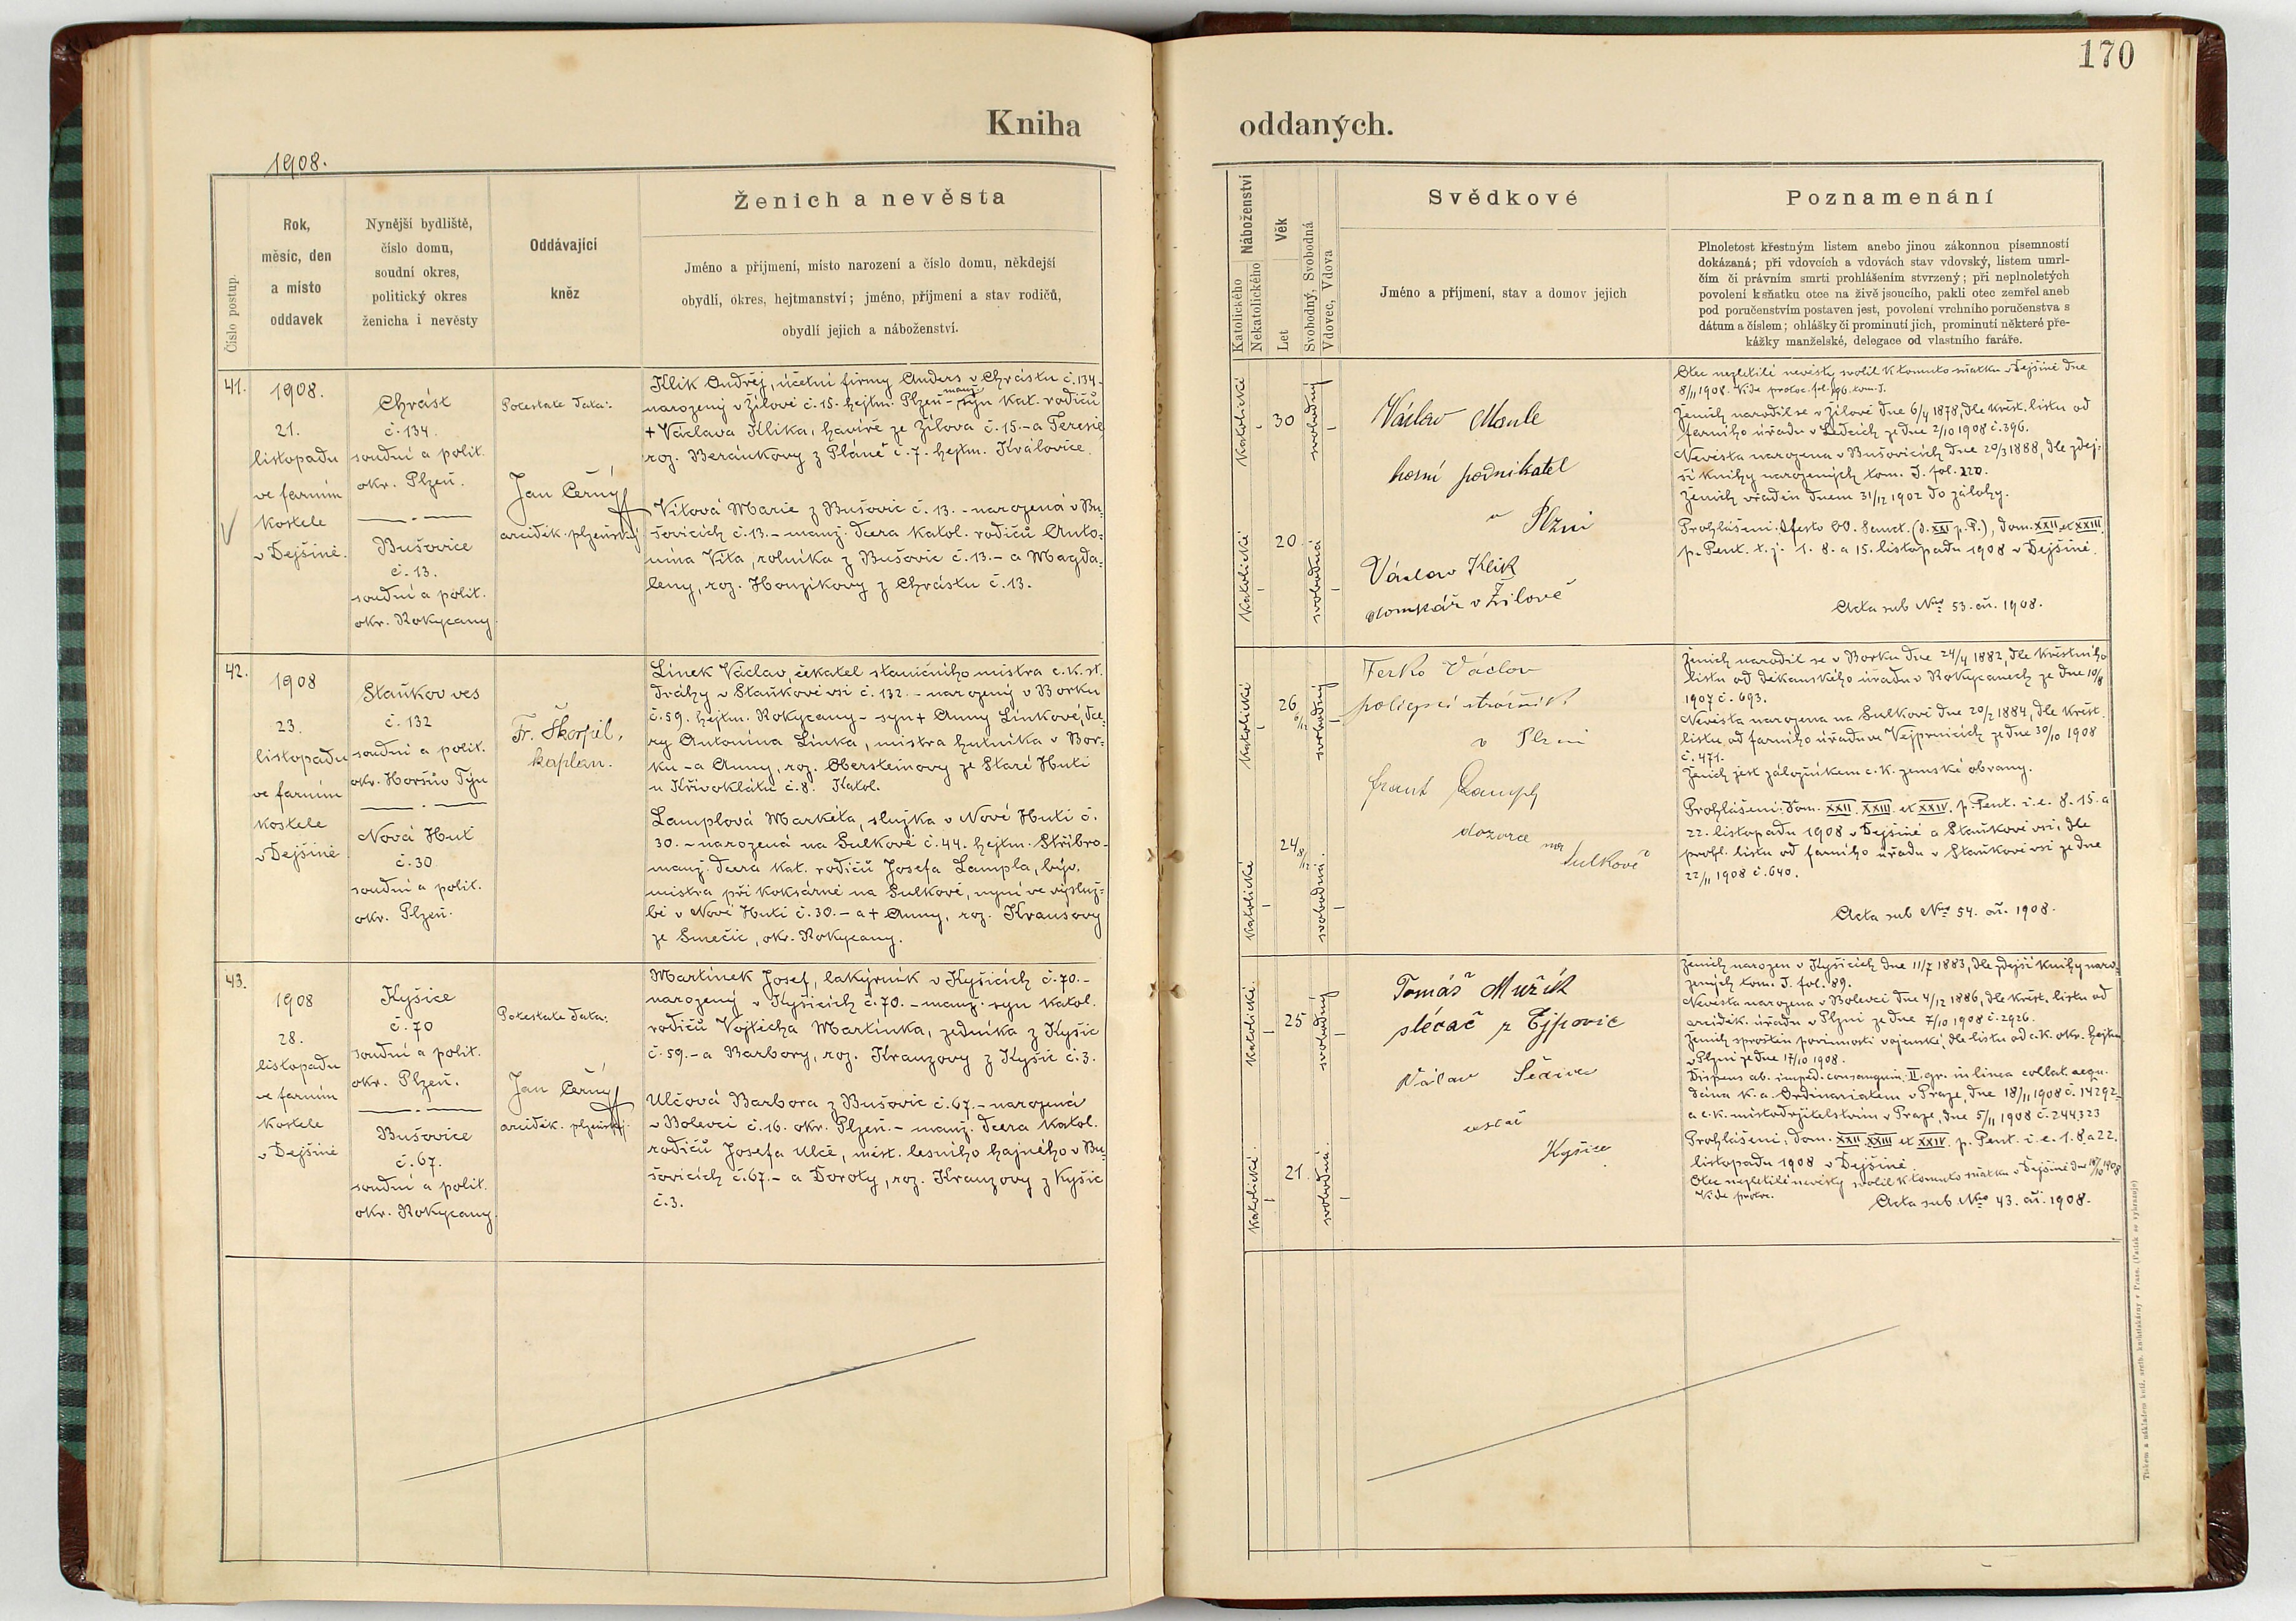 170
Kniha
oddaných.
1908.
Číslo postup.
Rok,
měsíc, den
a místo
oddavek
Nynější bydliště,
číslo domu,
soudní okres,
politický okres
ženicha i nevěsty
Oddávající
kněz
Ženich a nevěsta
Jméno a příjmení, místo narození a číslo domu, někdejší
obydlí, okres, hejtmanství; jméno, příjmení a stav rodičů,
obydlí jejich a náboženství.
Náboženství
Katolického
Nekatolického
Věk
Let
Svobodný, Svobodná
Vdovec, Vdova
Svědkové
Jméno a příjmení, stav a domov jejich
Poznamenání
Plnoletost křestným listem anebo jinou zákonnou písemností
dokázaná; při vdovcích a vdovách stav vdovský, listem umrl-
čím či právním smrti prohlášením stvrzený; při neplnoletých
povolení k sňatku otce na živě jsoucího, pakli otec zemřel aneb
pod poručenstvím postaven jest, povolení vrchního poručenstva s
dátum a číslem; ohlášky či prominutí jich, prominutí některé pře-
kážky manželské, delegace od vlastního faráře.
41.
1908.
21.
listopadu
ve farním
kostele
v Dejšině.
Chrást
č. 134.
soudní a polit.
okr. Plzeň.
Bušovice
č. 13.
soudní a polit.
okr. Rokycany.
Potestate data:
Jan Černý
arciděk. plzeňský
Klik Ondřej, účetní firmy Anders v Chrástu č. 134.-
narozený v Žilově č. 15. hejtm. Plzeň - manž. syn kat. rodičů
+ Václava Klika, havíře ze Žilova č. 15.- a Terezie
roz. Beránkovy z Pláně č. 7. hejtm. Královice.
Vítová Marie z Bušovic č. 13. - narozená v Bu-
šovicích č. 13. - manž. dcera katol. rodičů Anto-
nína Víta, rolníka z Bušovic č. 13. - a Magda-
leny, roz. Honzíkovy z Chrástu č. 13.
katolické
30
svobodný
katolické
20
svobodná
Václav Maule
horní podnikatel
v Plzni
Václav Klik
domkář v Žilově
Otec nezletilé nevěsty svolil k tomuto sňatku v Dejšině dne
8/11 1908. Vide protoc. fol. 96. tom. I.
Ženich narodil se v Žilově dne 6/4 1878, dle křest. listu od
farního úřadu v Ledcích ze dne 2/10 1908 č. 396.
Nevěsta narozena v Bušovicích dne 20/3 1888, dle zdej-
ší knihy narozených tom. I. fol. 220.
Ženich vřaděn dnem 31/12 1902 do zálohy.
Prohlášeni: festo OO. Sanct. (d. XXI p. P.), dom. XXII. et XXIII.
p. Pent. t. j. 1. 8. a 15. listopadu 1908 v Dejšině.
Acta sub Nro 53. ař. 1908.
42.
1908
23.
listopadu
ve farním
kostele
v Dejšině
Staňkov ves
č. 132
soudní a polit.
okr. Horšův Týn
Nová Huť
č. 30
soudní a polit.
okr. Plzeň.
Fr. Škorpil,
kaplan.
Línek Václav, čekatel staničního mistra c. k. st.
dráhy v Staňkově vsi č. 132. - narozený v Borku
č. 59. hejtm. Rokycany - syn + Anny Línkové, dce-
ry Antonína Línka, mistra hutníka v Bor-
ku - a Anny, roz. Obersteinovy ze Staré Huti
u Křivoklátu č. 8. Katol.
Lamplová Markéta, služka v Nové Huti č.
30. - narozená na Sulkově č. 44. hejtm. Stříbro-
manž. dcera kat. rodičů Josefa Lampla, býv.
mistra při koksárně na Sulkově, nyní ve výsluž-
bě v Nové Huti č. 30. - a + Anny, roz. Krausovy
ze Smečic, okr. Rokycany.
katolické
26 6/12
svobodný
katolické
24 8/12
svobodná
Ferko Václav
policejní strážník
v Plzni
Frant Lampl
dozorce na
Sulkově
Ženich narodil se v Borku dne 24/4 1882, dle křestního
listu od děkanského úřadu v Rokycanech ze dne 10/8
1907 č. 693.
Nevěsta narozena na Sulkově dne 20/2 1884, dle křest.
listu od farního úřadu ve Vejprnicích ze dne 30/10 1908
č. 471.
Ženich jest záložníkem c. k. zemské obrany.
Prohlášeni: Dom. XXII. XXIII. et XXIV. p. Pent. i. e. 8. 15. a
22. listopadu 1908 v Dejšině a Staňkově vsi, dle
prohl. listu od farního úřadu v Staňkově vsi ze dne
22/11 1908 č. 640.
Acta sub Nro 54. ař. 1908.
43.
1908
28.
listopadu
ve farním
kostele
v Dejšině
Kyšice
č. 70
soudní a polit.
okr. Plzeň.
Bušovice
č. 67.
soudní a polit.
okr. Rokycany.
Potestate data:
Jan Černý
arciděk. plzeňský.
Martínek Josef, lakýrník v Kyšicích č. 70. -
narozený v Kyšicích č. 70. - manž. syn katol.
rodičů Vojtěcha Martínka, zedníka z Kyšic
č. 59. - a Barbory, roz. Kranzovy z Kyšic č. 3.
Ulčová Barbora z Bušovic č. 67. - narozená
v Bolevci č. 16. okr. Plzeň. - manž. dcera katol.
rodičů Josefa Ulče, měst. lesního hajného v Bu-
šovicích č. 67. - a Doroty, roz. Kranzovy z Kyšic
č. 3.
katolické
25
svobodný
katolické
21
svobodná
Tomáš Mužík
slévač z Ejpovic
Václav
Kyšice
Ženich narozen v Kyšicích dne 11/7 1883, dle zdejší knihy naro-
zených tom. I. fol. 89.
Nevěsta narozena v Bolevci dne 4/12 1886, dle křest. listu od
arciděk. úřadu v Plzni ze dne 7/10 1908 č. 2926.
Ženich sproštěn povinnosti vojenské, dle listu od c. k. okr. hejtm.
v Plzni ze dne 17/10 1908.
Dispens ab. imped. consanguin. II. gr. in linea collat. aequ.
dána k. a. Ordinariátem v Praze, dne 18/11 1908 č. 14292
a c. k. místodržitelstvím v Praze, dne 5/11 1908 č. 244323
Prohlášeni: Dom. XXII. XXIII et XXIV. p. Pent. i. e. 1. 8 a 22.
listopadu 1908 v Dejšině
Otec nezletilé nevěsty svolil k tomuto sňatku v Dejšině dne 18/10 1908
Vide protoc.
Acta sub Nro 43. ař. 1908.
Tiskem a nákladem kníž. arcib. knihtiskárny v Praze. (Padělek se vyhrazuje)